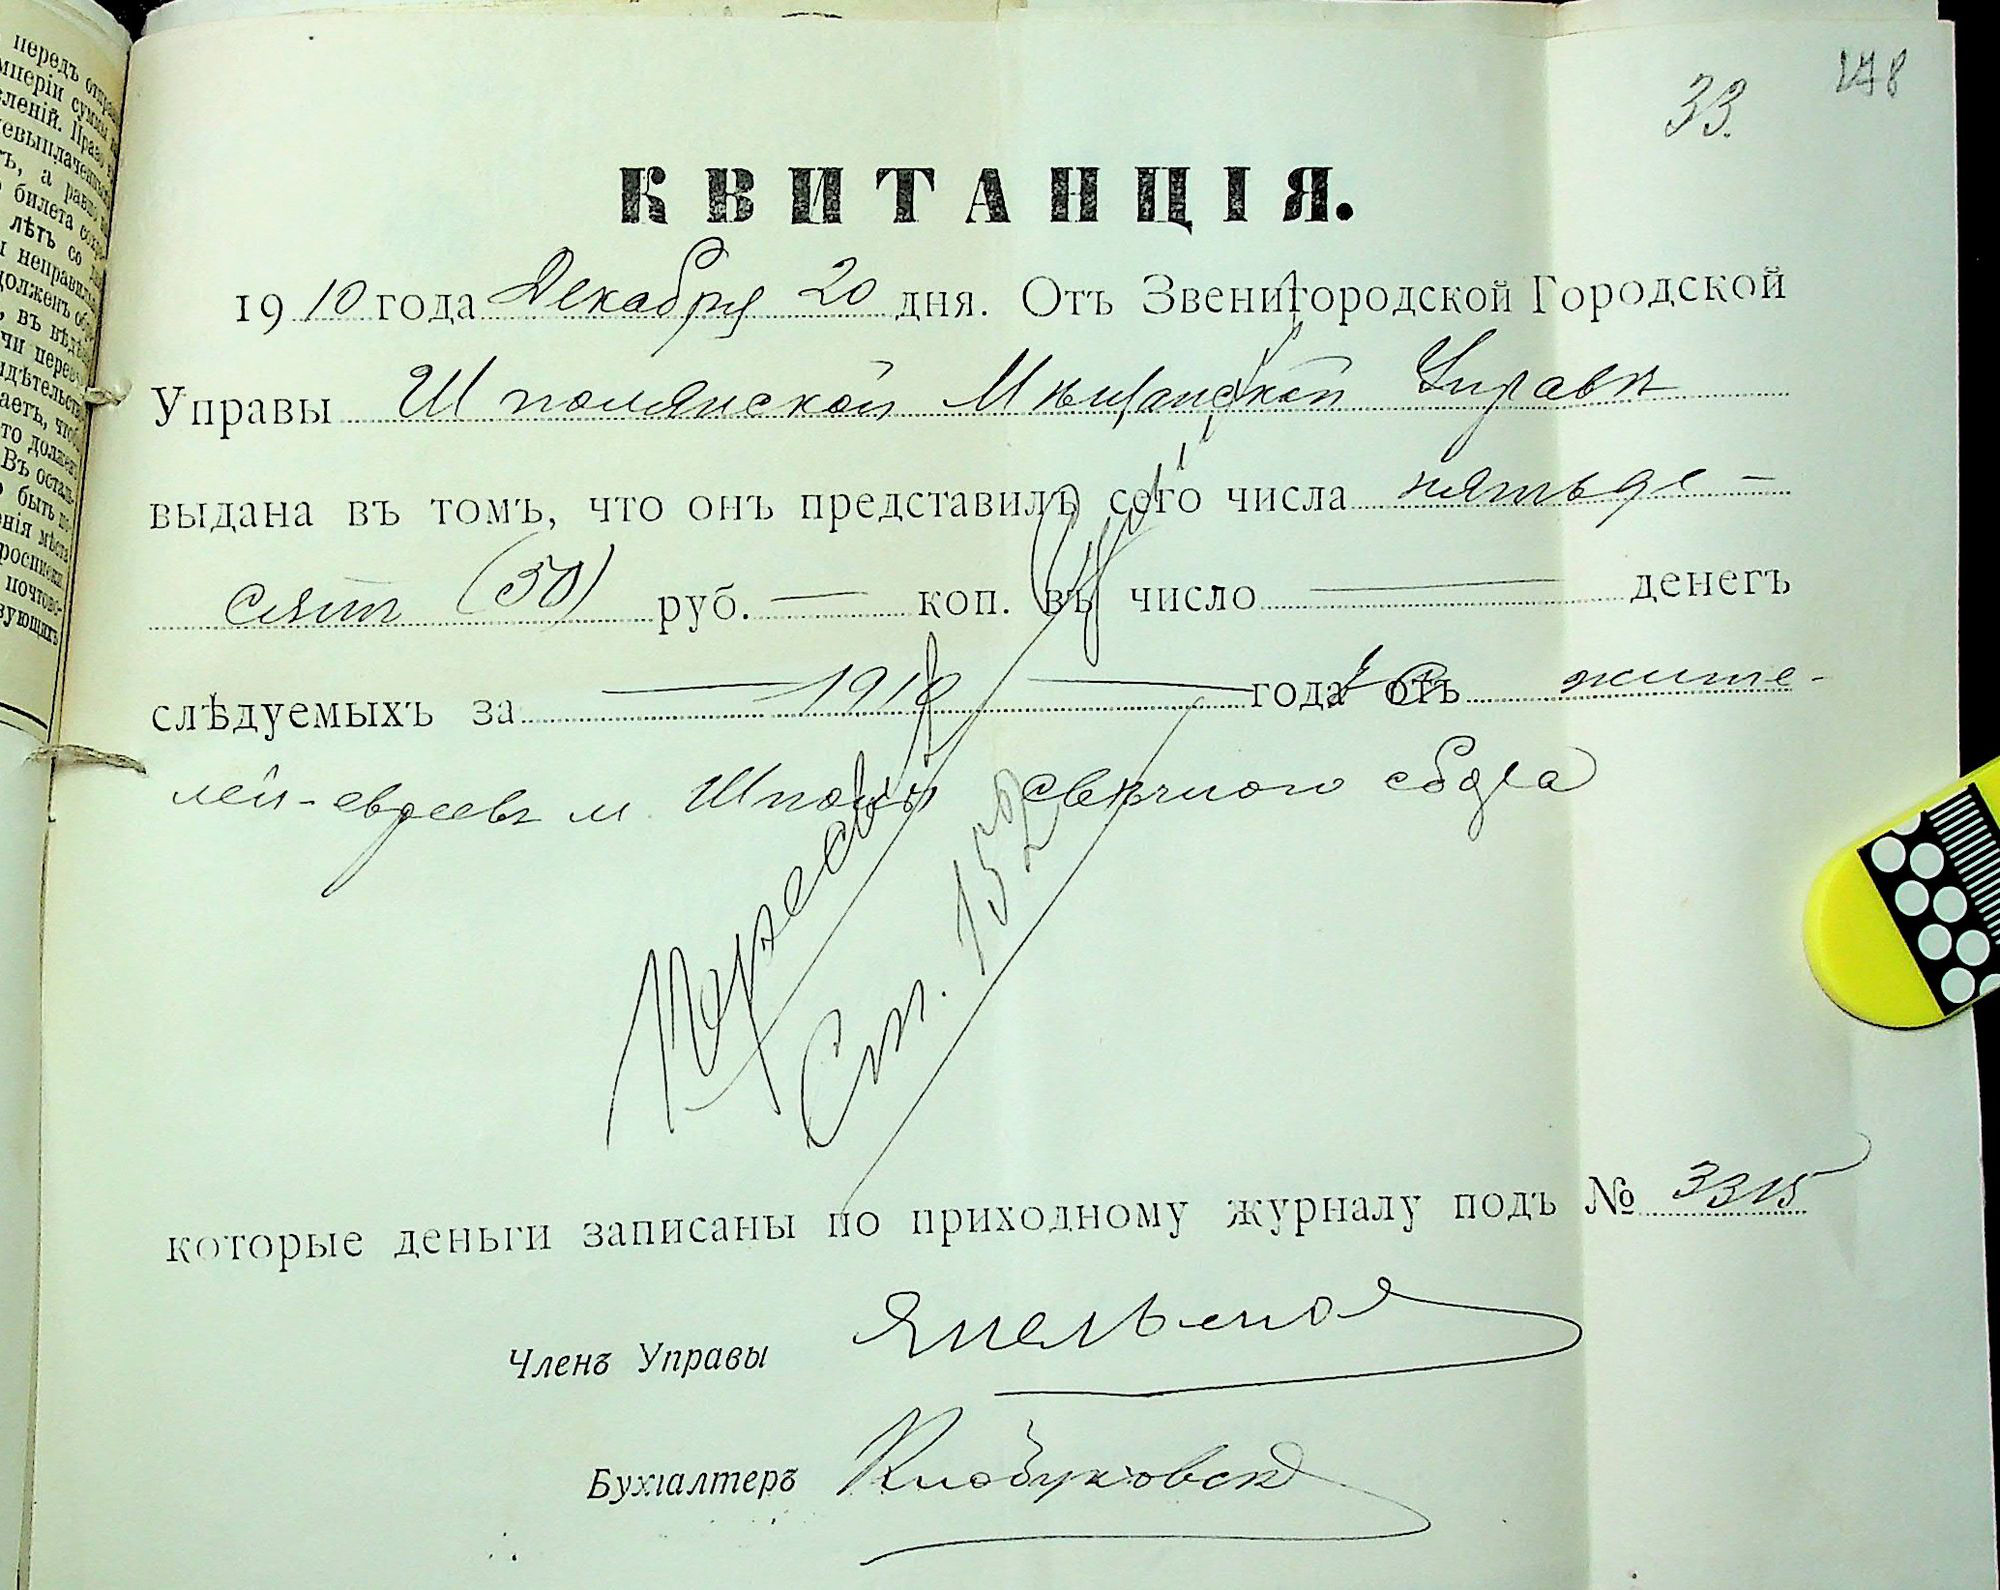 передъ
мперіи суммы
леній. Право
евыплаченны
а рав
билета сохр
лѣтъ со
неправиль
долженъ обр
въ вѣд
чи перев
идѣтельств
аетъ, чтоб
то должен
Въ осталь
быть по
енія мѣста
росписки
почтово-
вующихъ
33.
178
КВИТАНЦІЯ.
1910 года Декабря 20 дня. Отъ Звенигородской Городской
Управы Шполянской Мѣщанской Управѣ
выдана въ томъ, что онъ представилъ сего числа пятьде-
сятъ (50) руб. — коп. въ число — денегъ
слѣдуемыхъ за — 1910 — года съ жите-
лей-евреевъ м. Шполы свѣчного сбора
Ст. 152
которые деньги записаны по приходному журналу подъ № 3315
Членъ Управы
Бухгалтеръ Клобуковскій